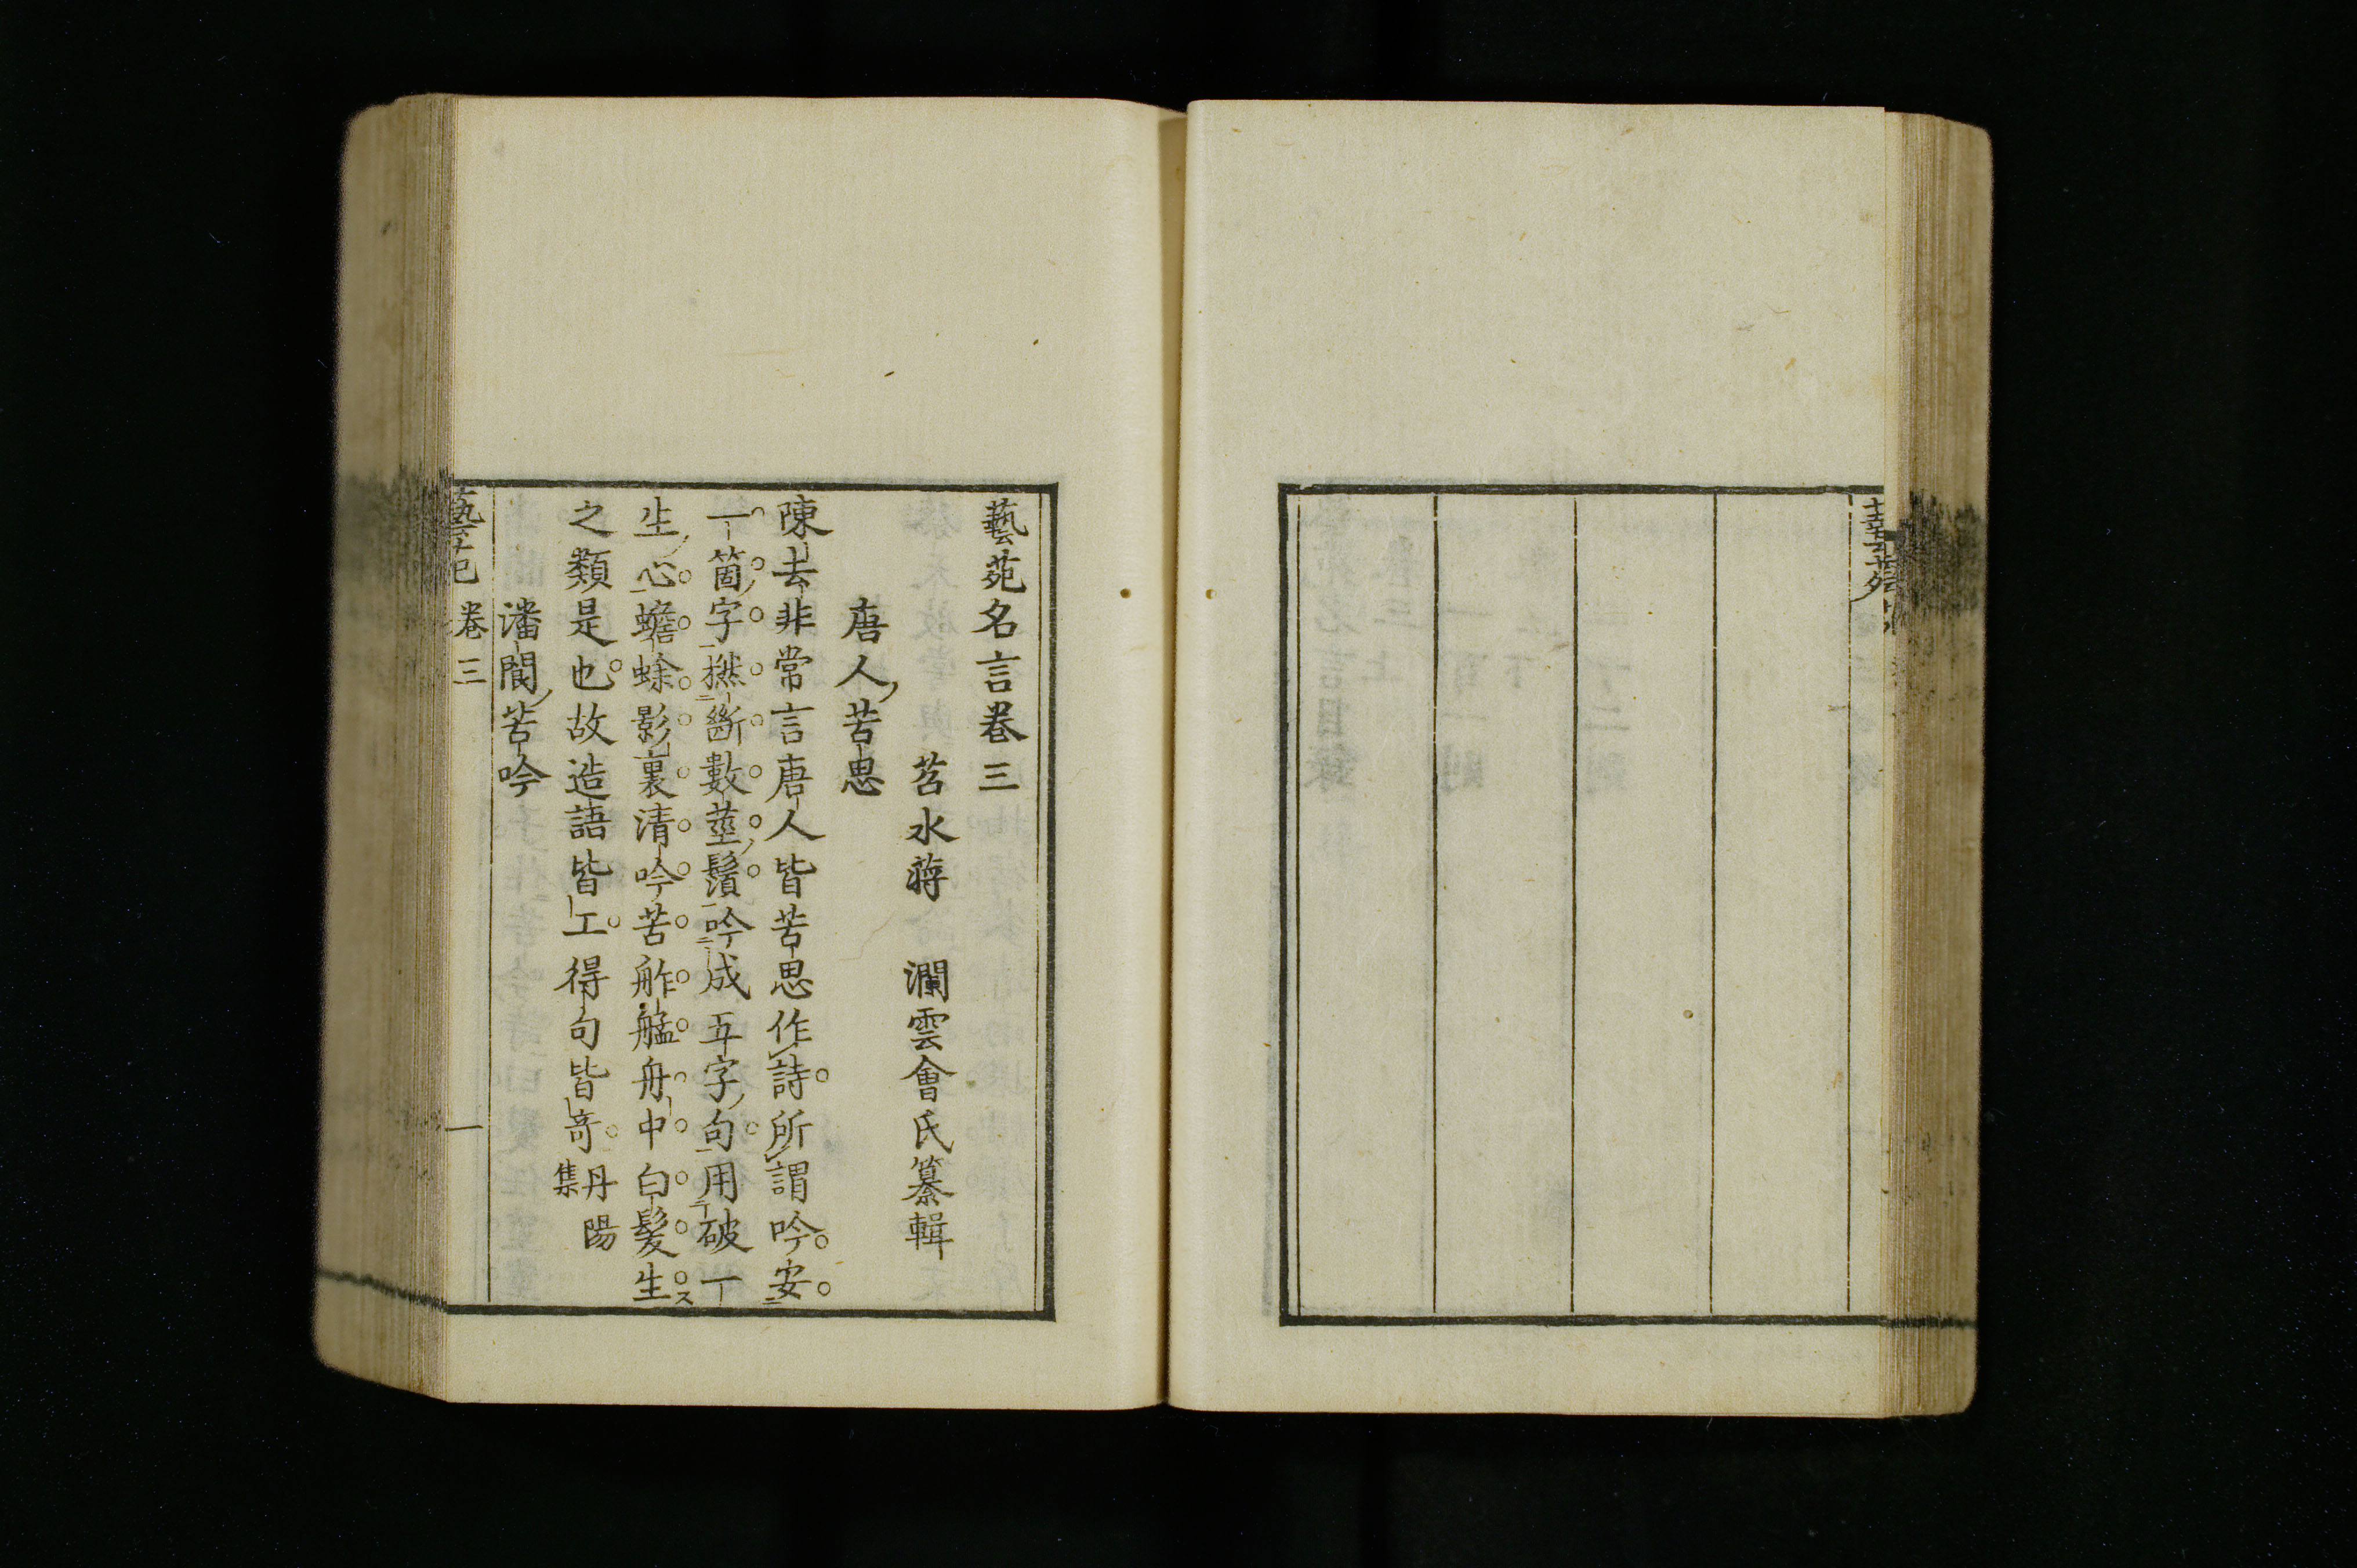 藝苑名言卷三
苕水蔣　瀾雲會氏纂輯
唐人苦思
陳去非常言唐人皆苦思作詩所謂吟安
一箇字撚斷數莖鬚吟成五字句用破一
生心蟾蜍影裏清吟苦舴艋舟中白髮生
之類是也故造語皆工得句皆竒丹陽
集
潘閬苦吟
卷三
一